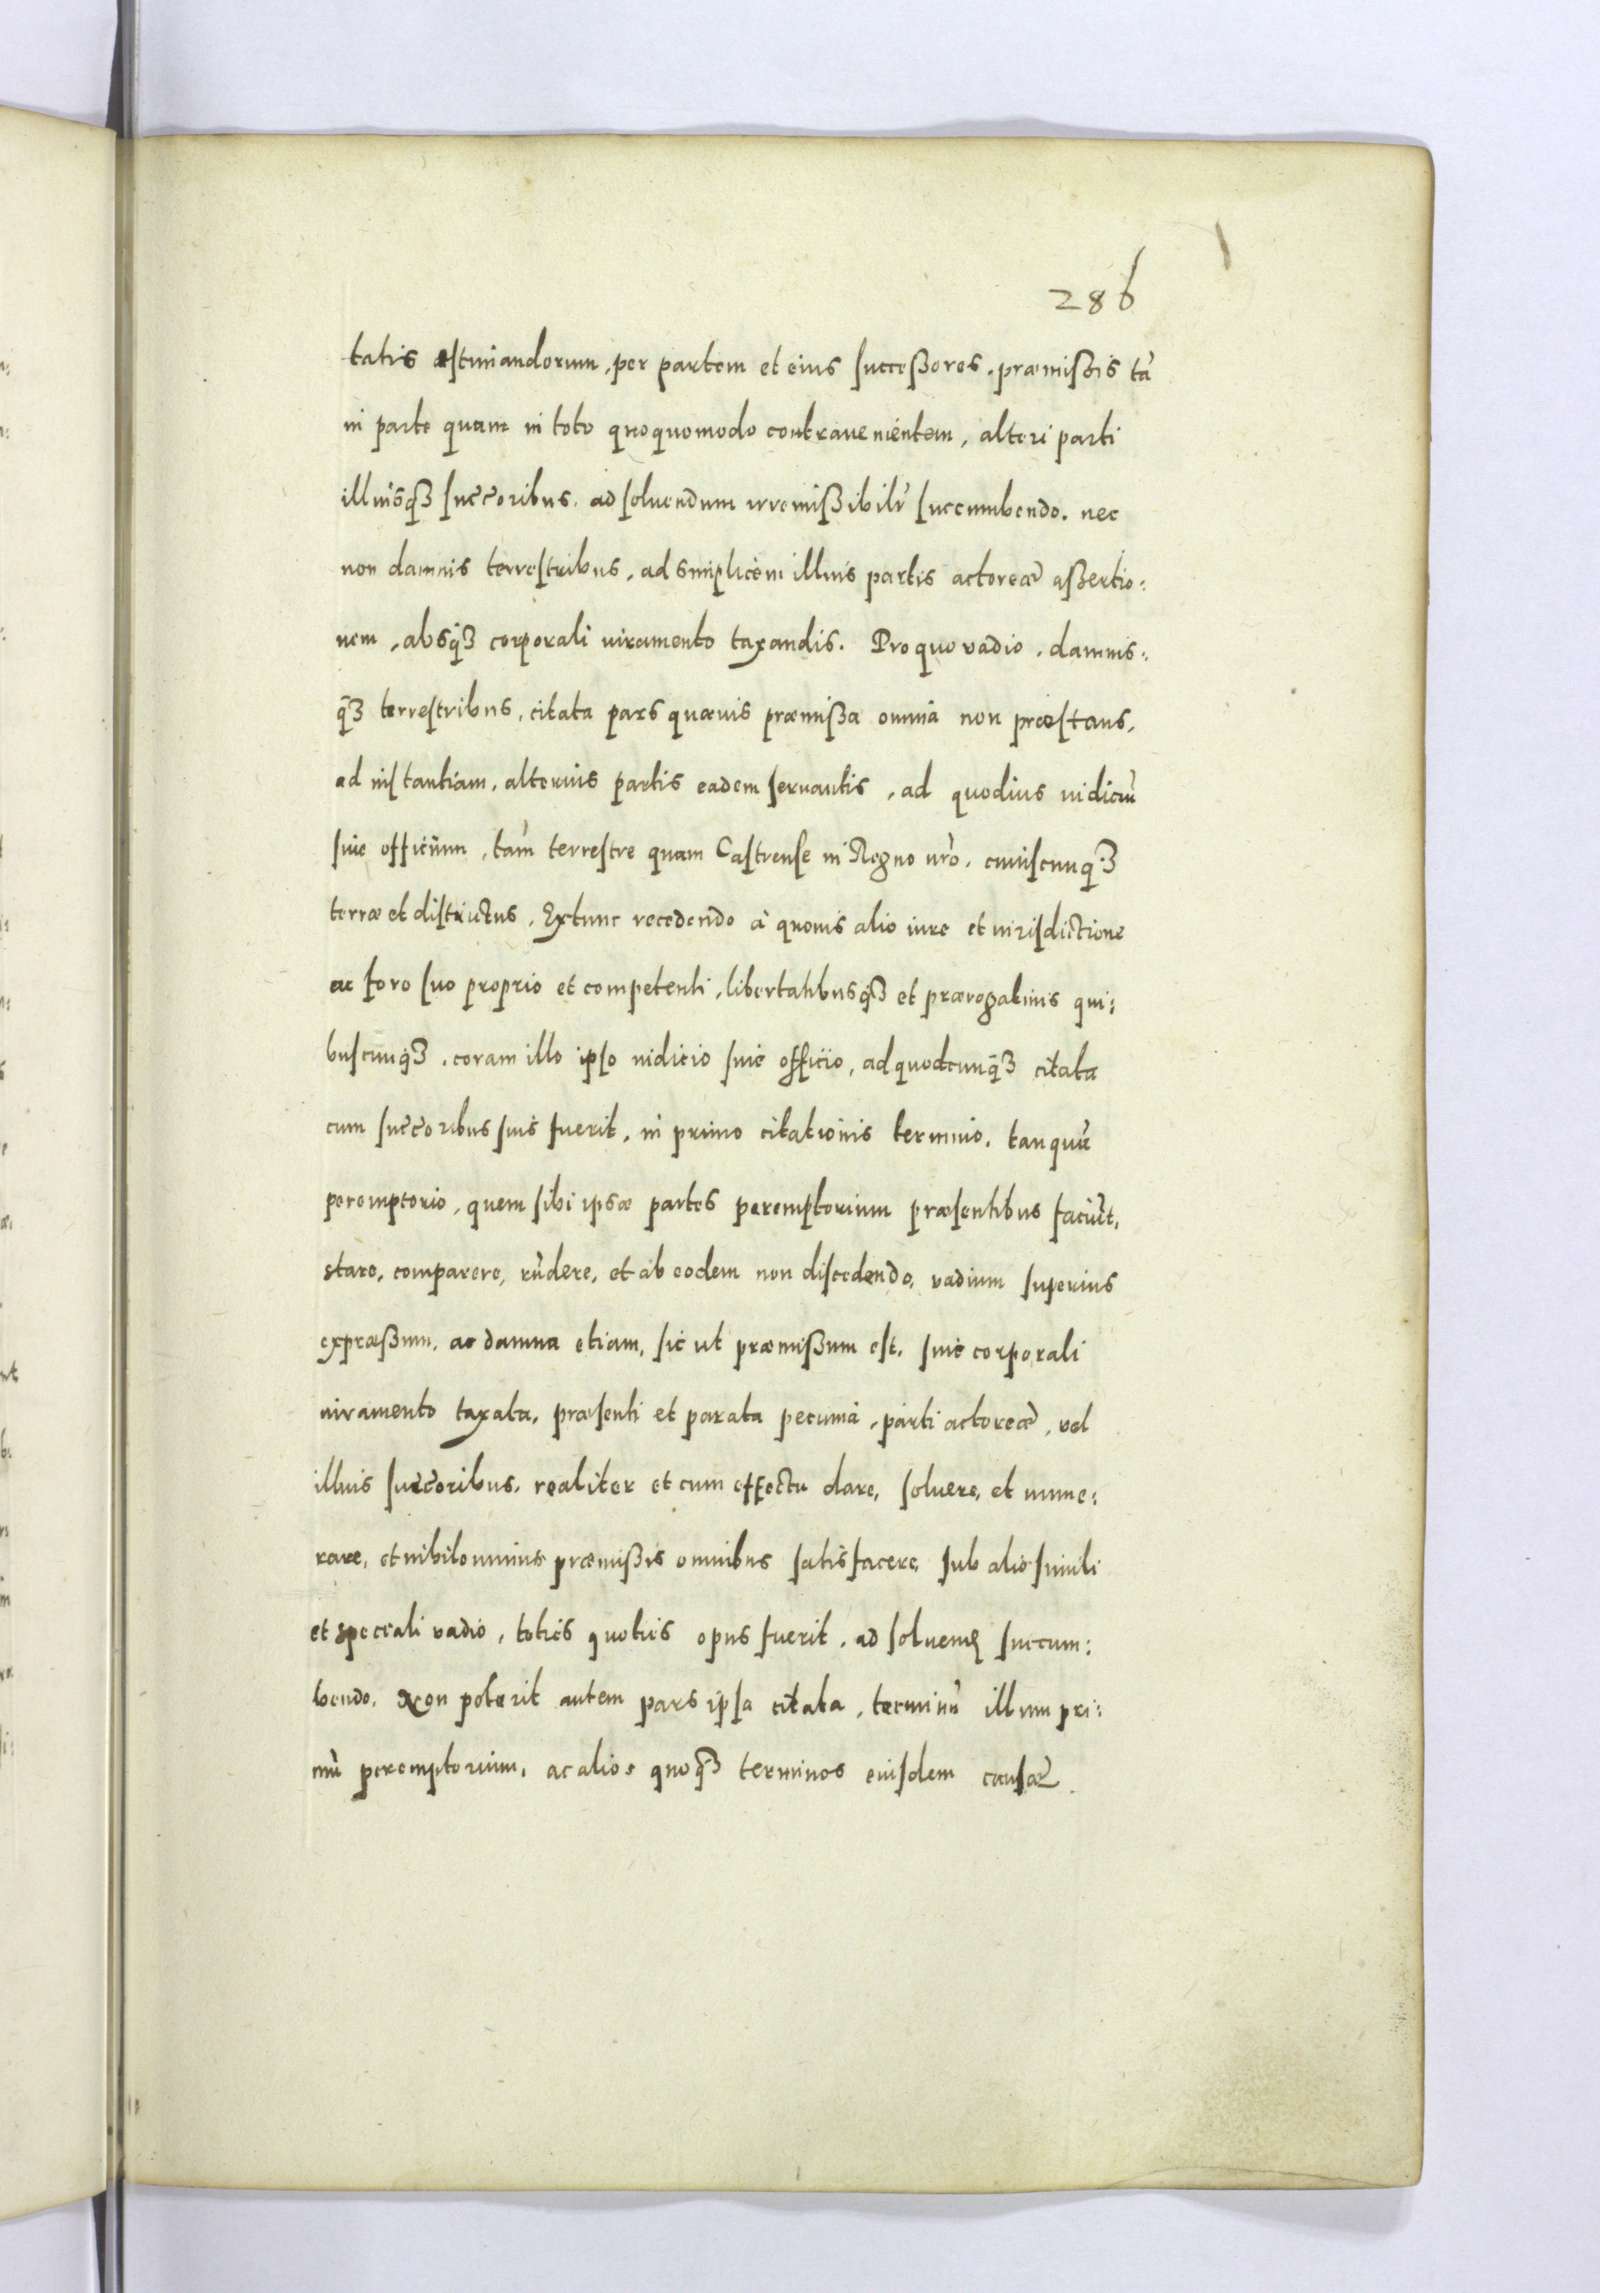 286
tatis æstimandorum, per partem et eius successores, præmissis tã
in parte quam in toto quoquomodo contrauenientem, alteri parti
illiusq3 succoribus, ad soluendum irremissibilr succumbendo. nec
non damnis terrestribus, ad simplicem illius partis actoreæ assertio:
nem, absq3 corporali iuramento taxandis. Pro quo vadio, damnis:
q3 terrestribus, citata pars quæuis præmissa omnia non præstans,
ad instantiam, alterius partis eadem seruantis, ad quoduis iudiciũ
siue officium, tam terrestre quam Castrense in Regno nro, cuiuscunq3
terræ et districtus, Extunc recedendo à quouis alio iure et iurisdictione
ac foro suo proprio et competenti, libertatibusq3 et prærogatiuis qui:
buscunq3, coram illo ipso iudicio siue officio, ad quodcunq3 citata
cum succoribus suis fuerit, in primo citationis termino, tanquã
peremptorio, quem sibi ipsæ partes peremptorium præsentibus faciũt,
stare, comparere, rñdere, et ab eodem non discedendo, vadium superius
expræssum, ac damna etiam, sic ut præmissum est, siue corporali
iuramento taxata, præsenti et parata pecunia, parti actoreæ, vel
illius succoribus, realiter et cum effectu dare, soluere, et nume:
rare, et nihilominus præmissis omnibus satisfacere, sub alio simili
et speciali vadio, toties quoties opus fuerit, ad soluend succum:
bendo. Non poterit autem pars ipsa citata, terminũ illum pri:
mũ peremptorium, ac alios quoq3 terminos eiusdem causæ